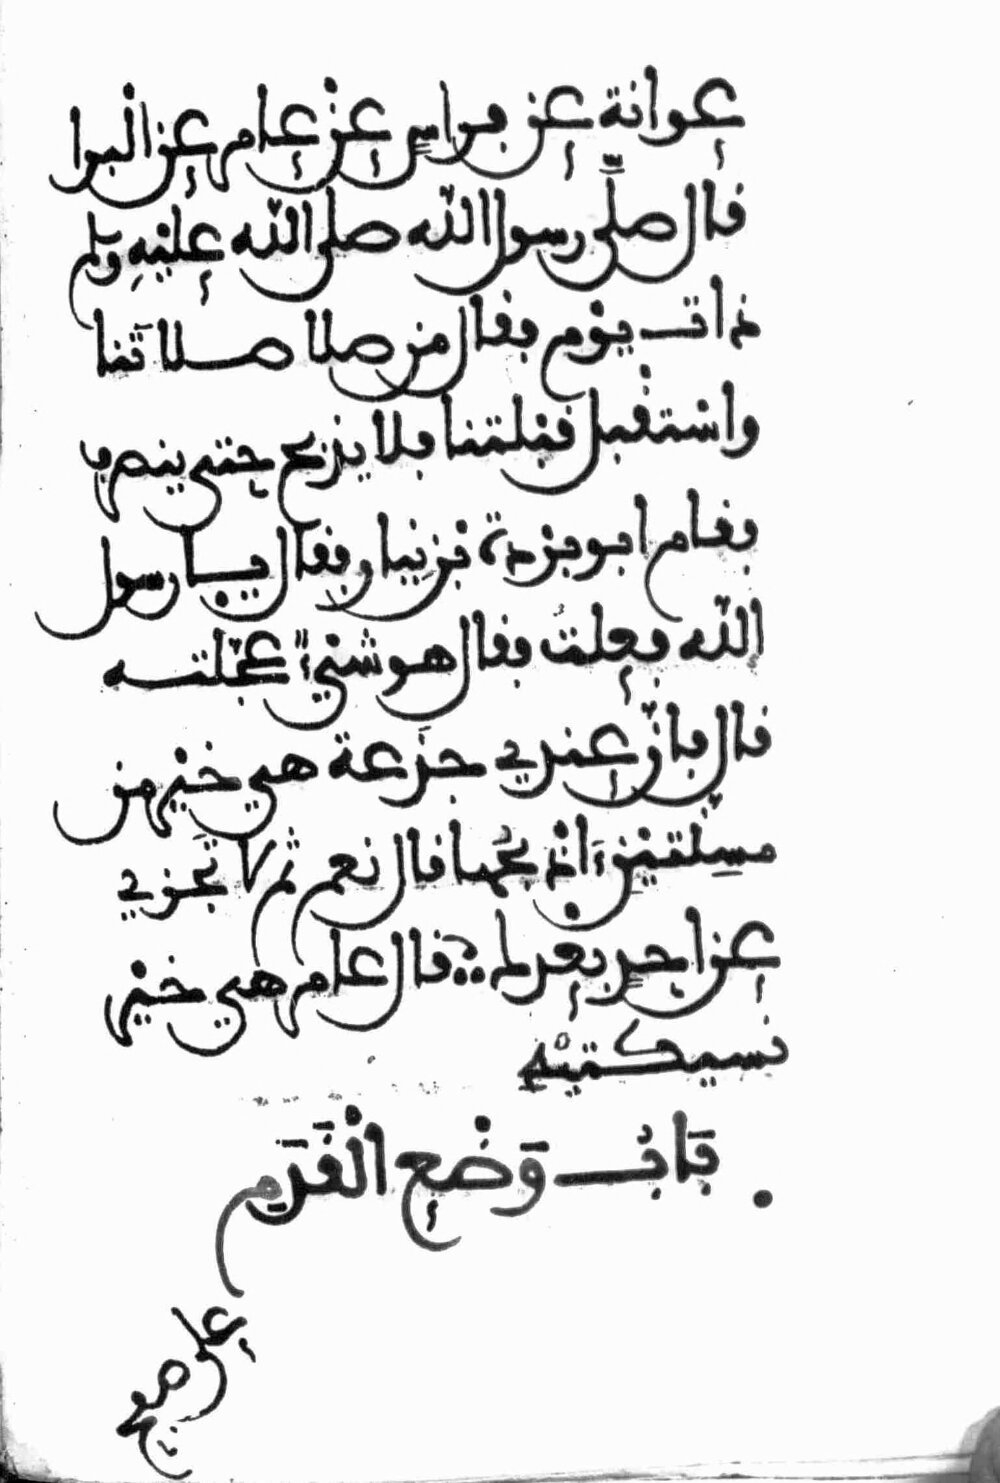 عوانة عن فراس عن عامر عن البرا
قال صلى رسول الله صلى الله عليه وسلم
ذات يوم فقال من صلا صلاتنا
واستقبل قبلتنا فلا يذبح حتى ينصرف
فقام ابو بردة بن نيار فقال يا رسول
الله فعلت فقال هو شيء عجلته
قال فان عندي جذعة هي خير من
مسنتين ءاذبحها قال نعم ثم لا تجزي
عن احد بعدك قال عامر هي خير
نسيكتيه
باب وضع القدم
على صفح